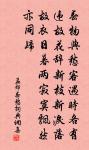 春物與愁客遇時各有
違故花辭新枝新淚落
故衣日暮兩寂寞飄然
亦同歸
孟郊春愁